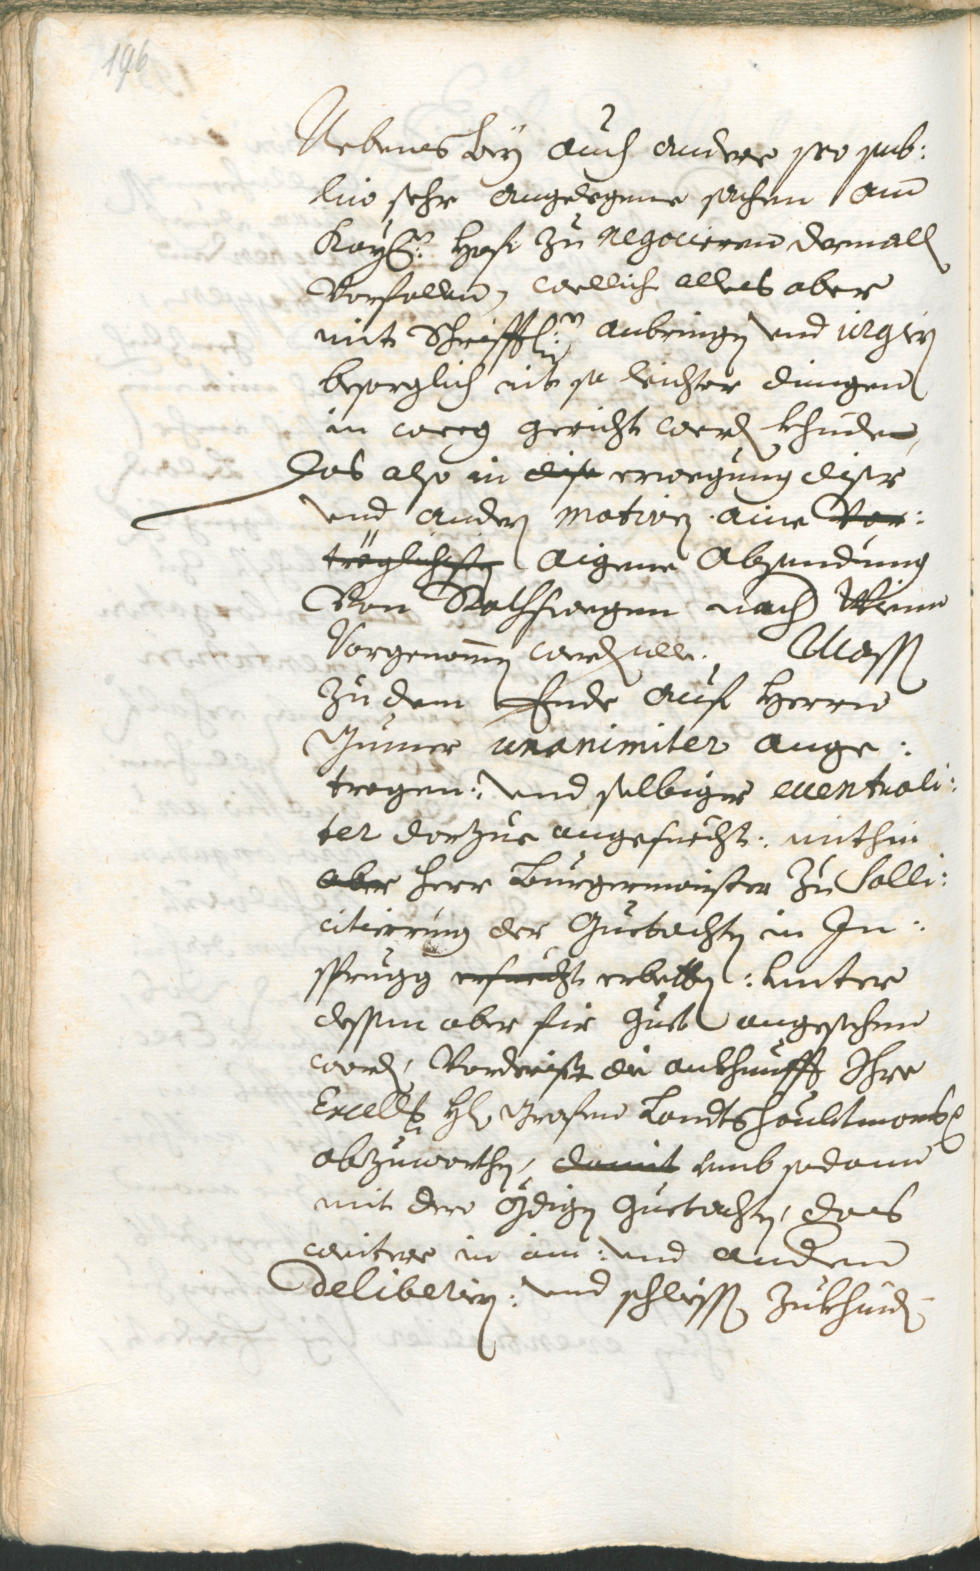 196
Nebens bey auch andere pro pub:
lico sehr angelegene sachen am
Kay: Hof zu negocieren dermall
Vorfallen, wellich alles aber
mit Schrifftl: anbringen und
besorglich nit so leichter dingen
in weeg gericht werden khinden,
Das also in dise erwegung diser
und andern motiven aine vor:
träglichiste aigene Absendung
Von Rathswegen nach Wienn
Vorgenomen werden solle. Mass
zu dem Ende auf Herrn
Gumer unanimiter ange:
tragen: und selbiger eventuali:
ter darzue angesuecht: mithin
aber Herr Burgermaister zu Solli:
citierung der Guetachten in In:
sprugg ersuecht erbetten: unter
dessen aber für guet angesehen
worden, Vorderist die ankhunfft Ihro
Excell: H: Grafen Landtshaubtmans
abzuwarthen, damit umb sodann
mit dero gdigen Guetachten, das
weitere in ain: und andern
deliberiren: und schliessen zukhinden